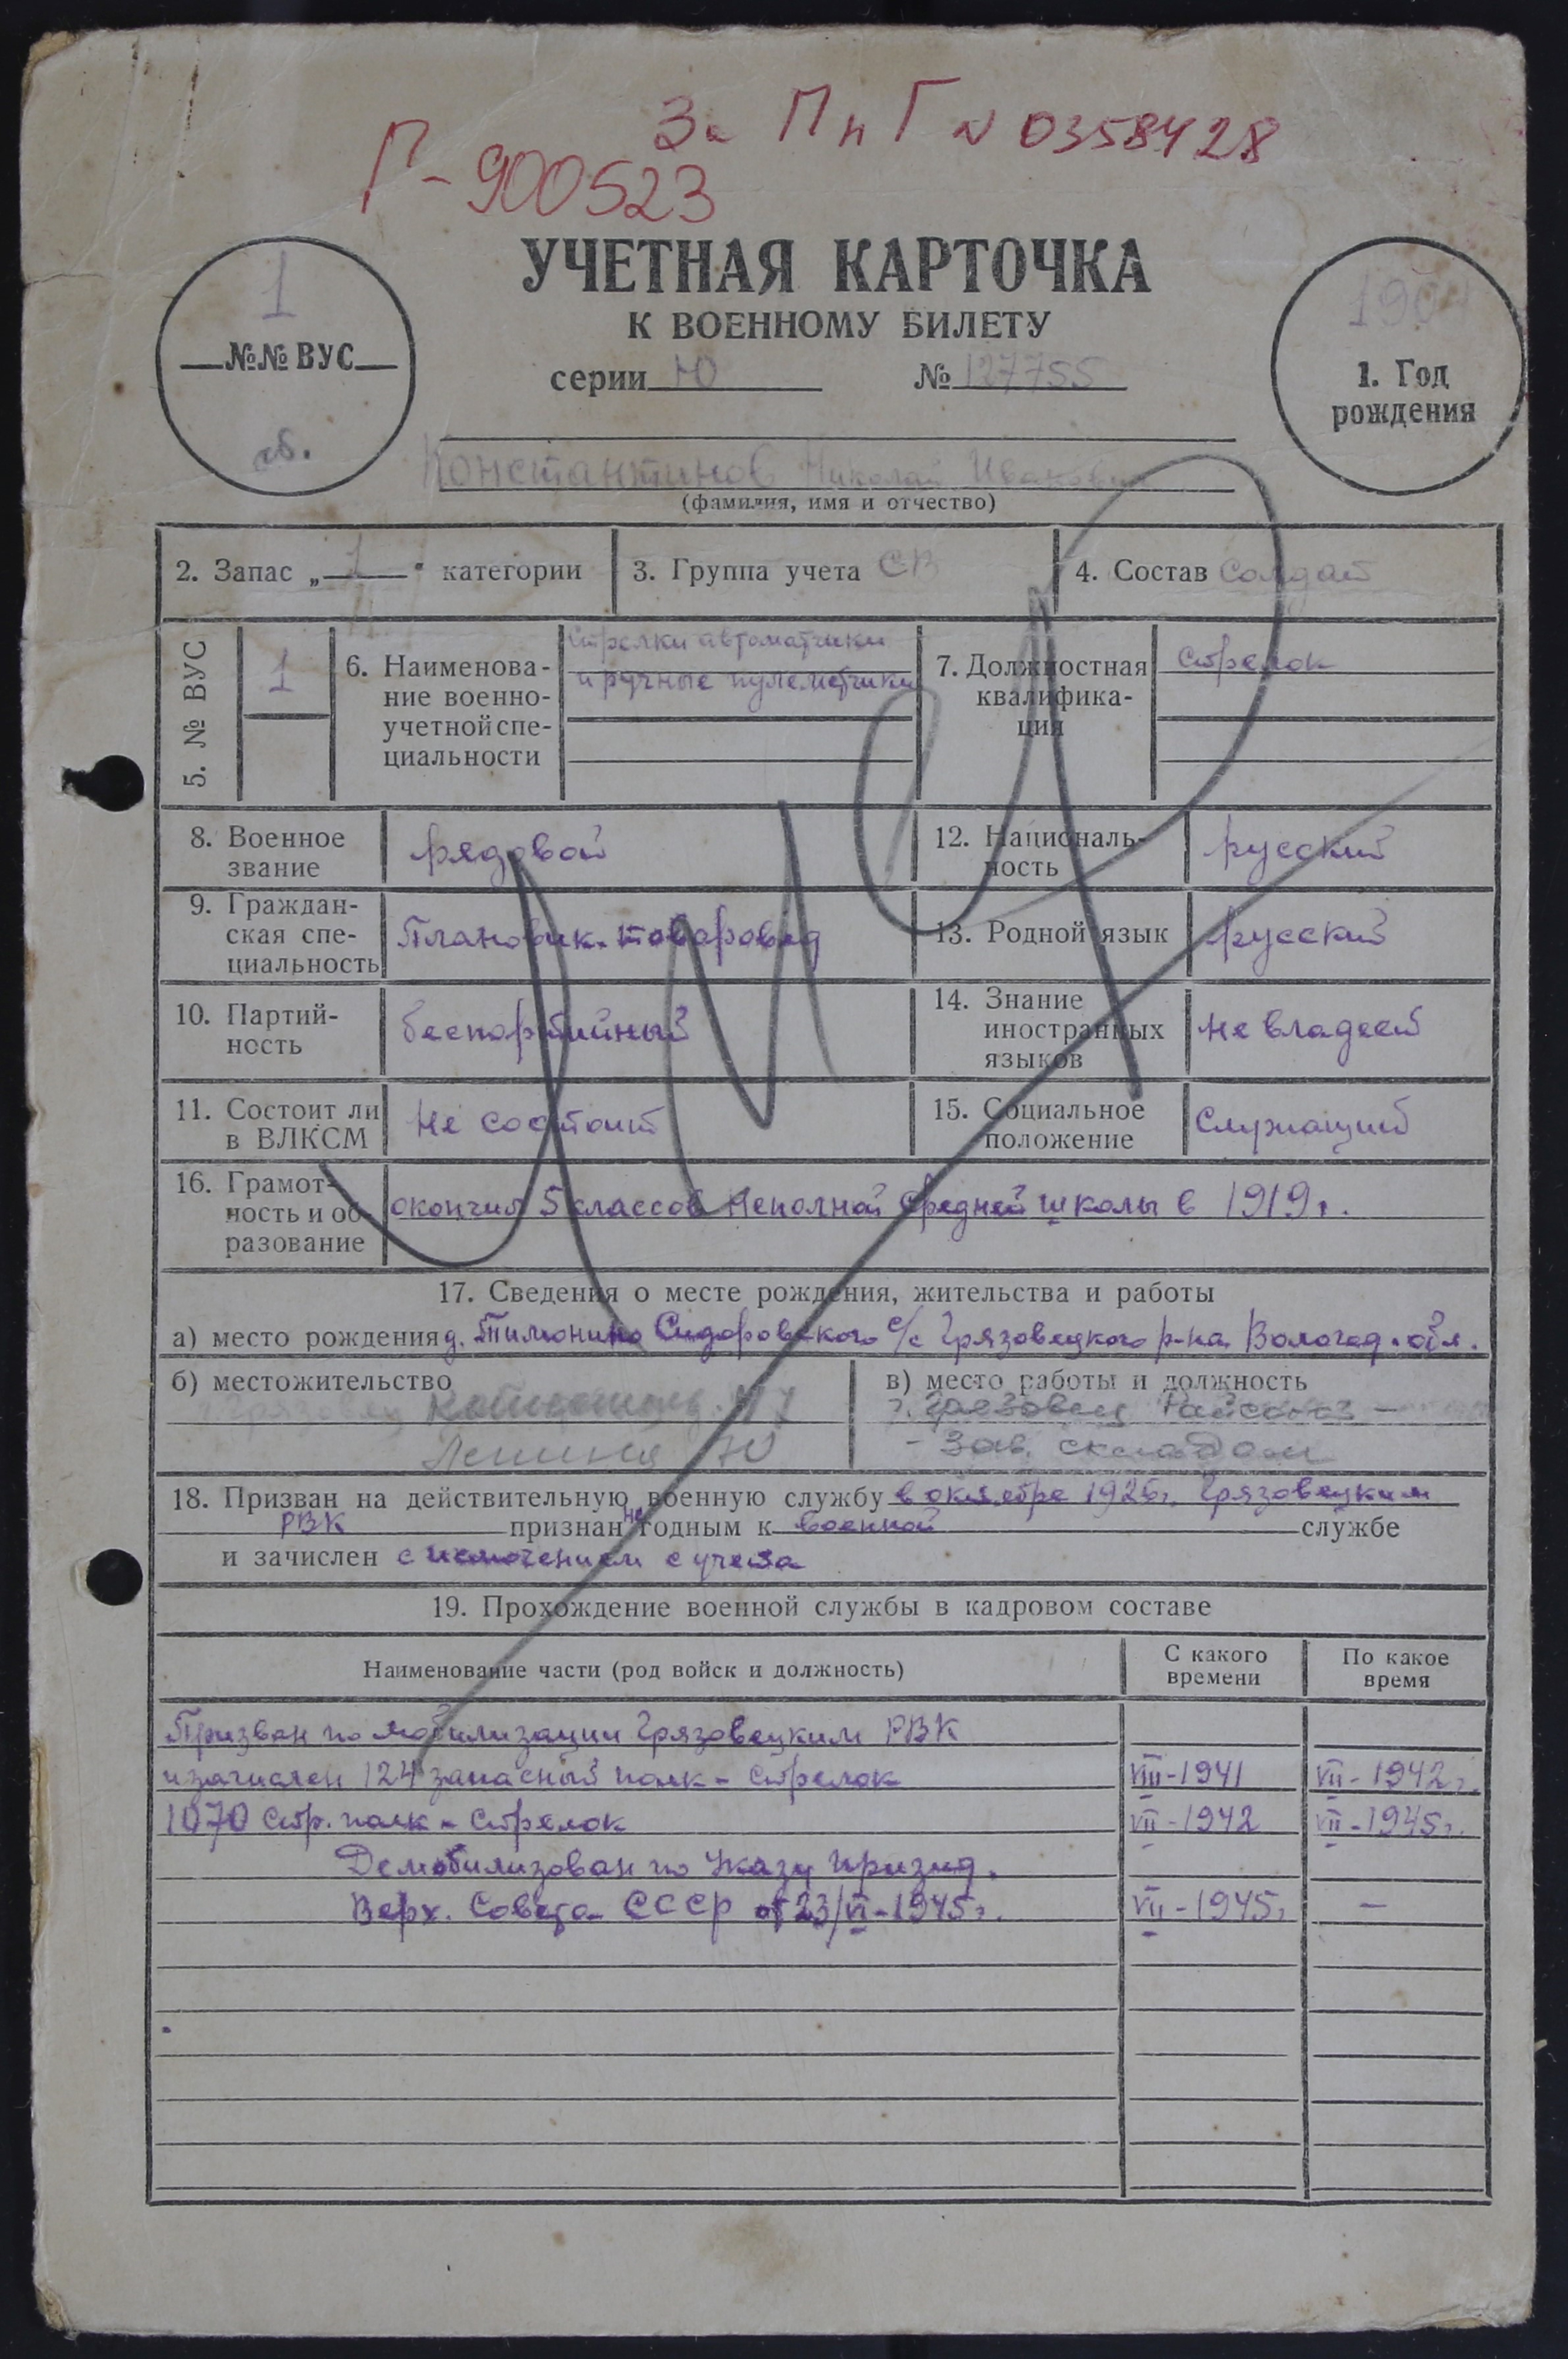 За П п Г № 0358428
Г-900523
УЧЕТНАЯ КАРТОЧКА
К ВОЕННОМУ БИЛЕТУ
серии Ю № 127755
1
№№ ВУС
сб.
1. Год
рождения
Константинов Николай Иванович
(фамилия, имя и отчество)
2. Запас „1" категории
3. Группа учета СВ
4. Состав Солдат
5. № ВУС
1
6. Наименова-
ние военно-
учетной спе-
циальности
Стрелки автоматчики
и ручные пулеметчики
7. Должностная
квалифика-
ция
стрелок
8. Военное
звание
рядовой
12. Националь-
ность
русский
9. Граждан-
ская спе-
циальность
Плановик-товаровед
13. Родной язык
русский
10. Партий-
ность
беспартийный
14. Знание
иностранных
языков
не владеет
11. Состоит ли
в ВЛКСМ
Не состоит
15. Социальное
положение
Служащий
16. Грамот-
ность и об-
разование
окончил 5 классов Неполной средней школы в 1919 г.
17. Сведения о месте рождения, жительства и работы
а) место рождения д. Тимонино Сидоровского с/с Грязовецкого р-на Вологод. обл.
б) местожительство
Ленина 70
в) место работы и должность
г. Грязовец Райсоюз -
- Зав. складом
18. Призван на действительную военную службу в октябре 1926 г. Грязовецким
РВК признан не годным к военной службе
и зачислен с исключением с учета
19. Прохождение военной службы в кадровом составе
Наименование части (род войск и должность)
С какого
времени
По какое
время
Призван по мобилизации Грязовецким РВК
и зачислен 124 запасный полк - Стрелок VIII-1941 VII-1942 г.
1070 Стр. полк - Стрелок VII-1942 VII-1945 г.
Демобилизован по Указу презид.
Верх. Совета СССР от 23/VI-1945 г. VII-1945 г. —